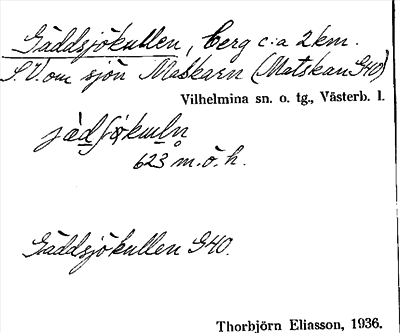 Gäddsjökullen, berg c:a 2 km.
S.V. om sjön Matskarn (Matskan G40)
Vilhelmina sn. o. tg., Västerb. l.
623 m.ö.h.
Gäddsjökullen G40.
Thorbjörn Eliasson, 1936.